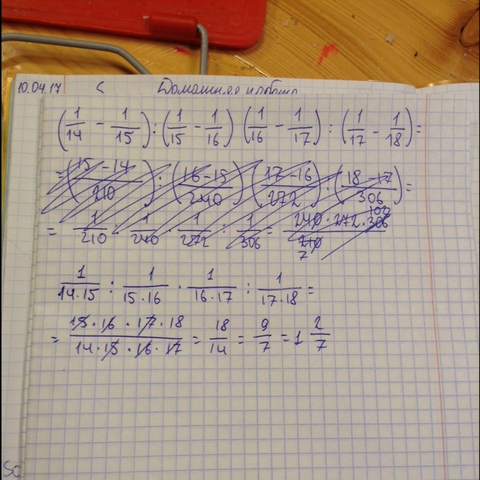 10.04.17 С Домашняя работа
(1/14 - 1/15) : (1/15 - 1/16) (1/16 - 1/17) : (1/17 - 1/18) =
= (15-14/210) : (16-15/240) (17-16/272) : (18-17/306) =
= 1/210 · 1/240 · 1/272 : 1/306 = 240·272·306/210
1/14·15 : 1/15·16 · 1/16·17 : 1/17·18 =
= 15·16·17·18/14·15·16·17 = 18/14 = 9/7 = 1 2/7